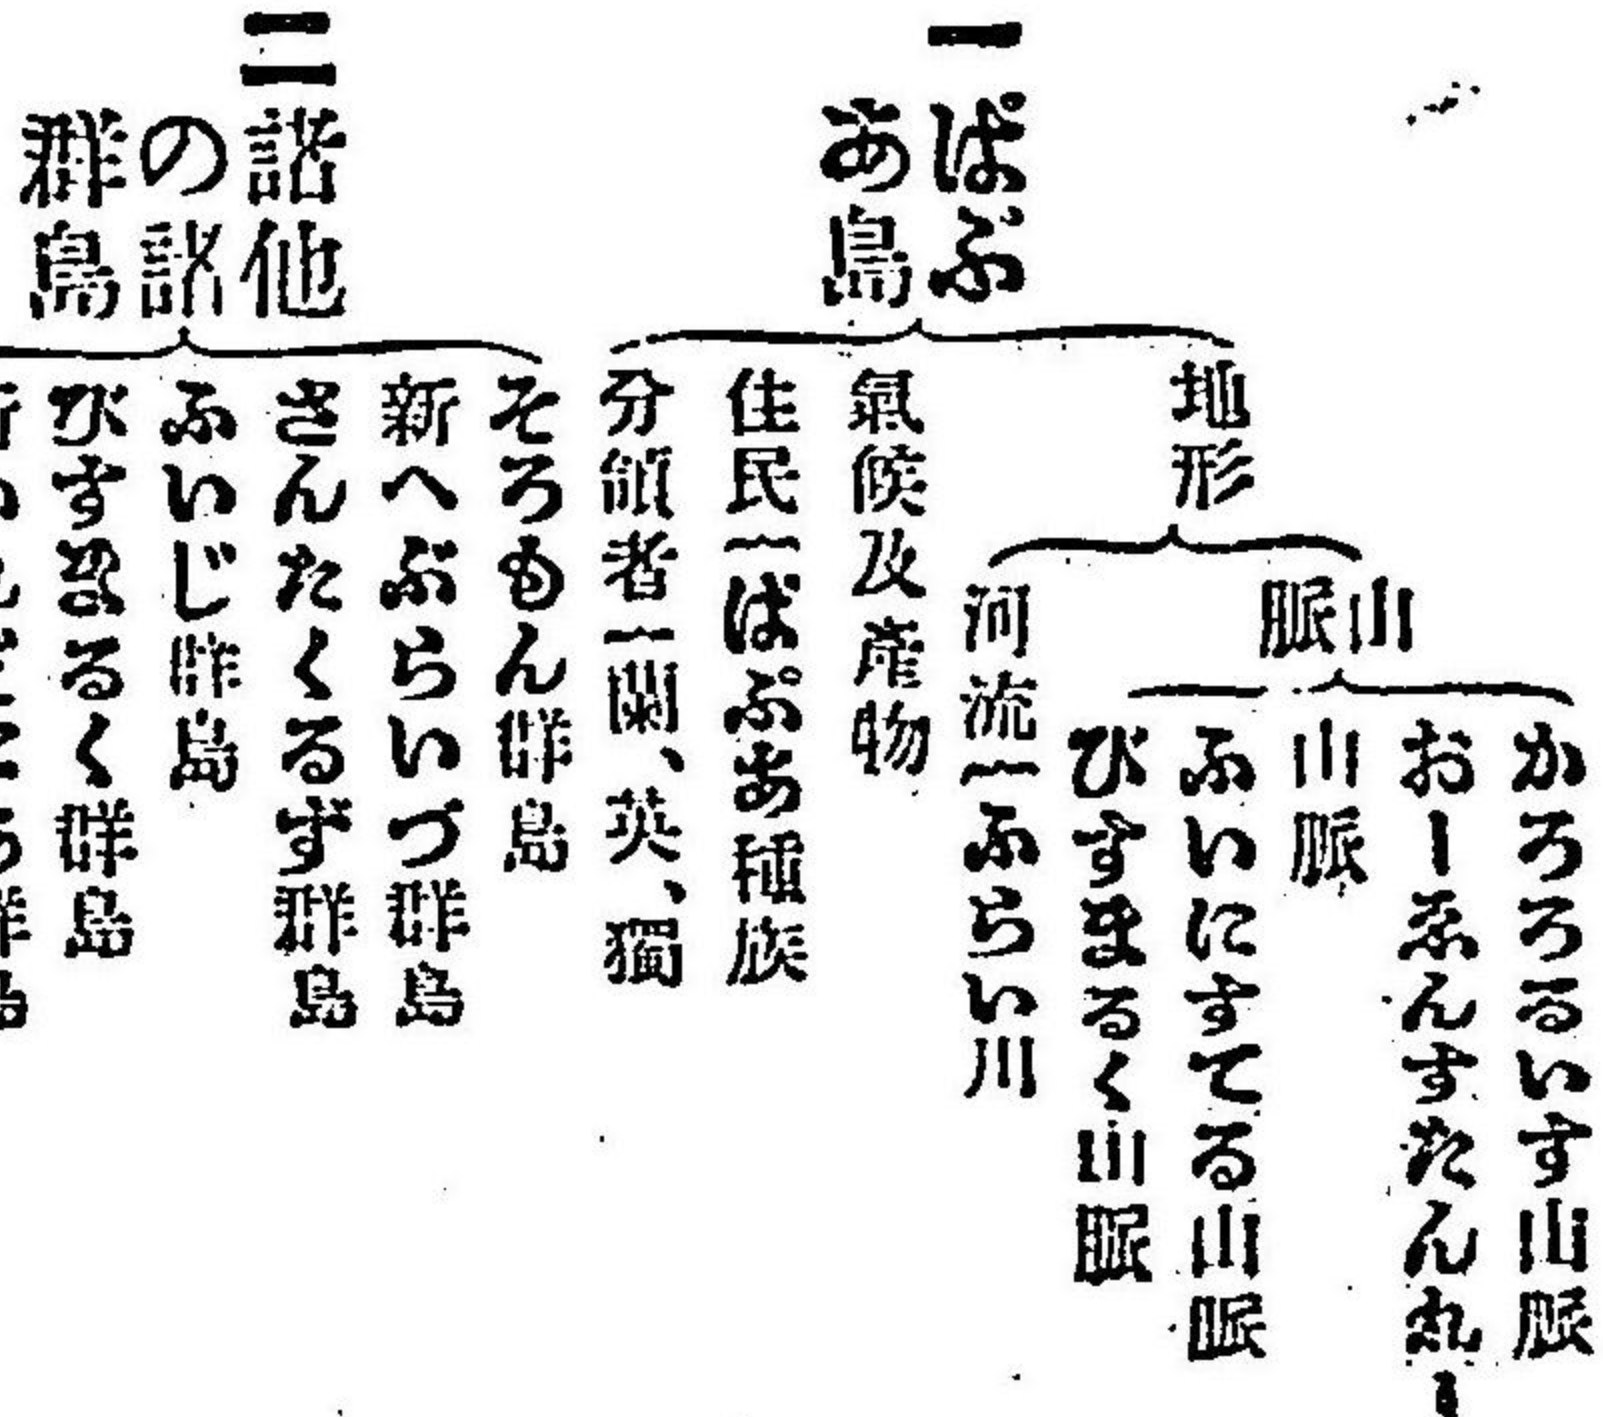 一ぱぷ
あ島
地形
山
脈
かろろるいす山脈
おーゑんすたんれー
山脈
ふいにすてる山脈
びすまるく山脈
河流―ふらい川
氣候及產物
住民―ぱぷあ種族
分領者―蘭、英、獨
二諸他
の諸
群島
そろもん群島
新へぶらいづ群島
さんたくるず群島
ふいじ群島
びすまるく群島